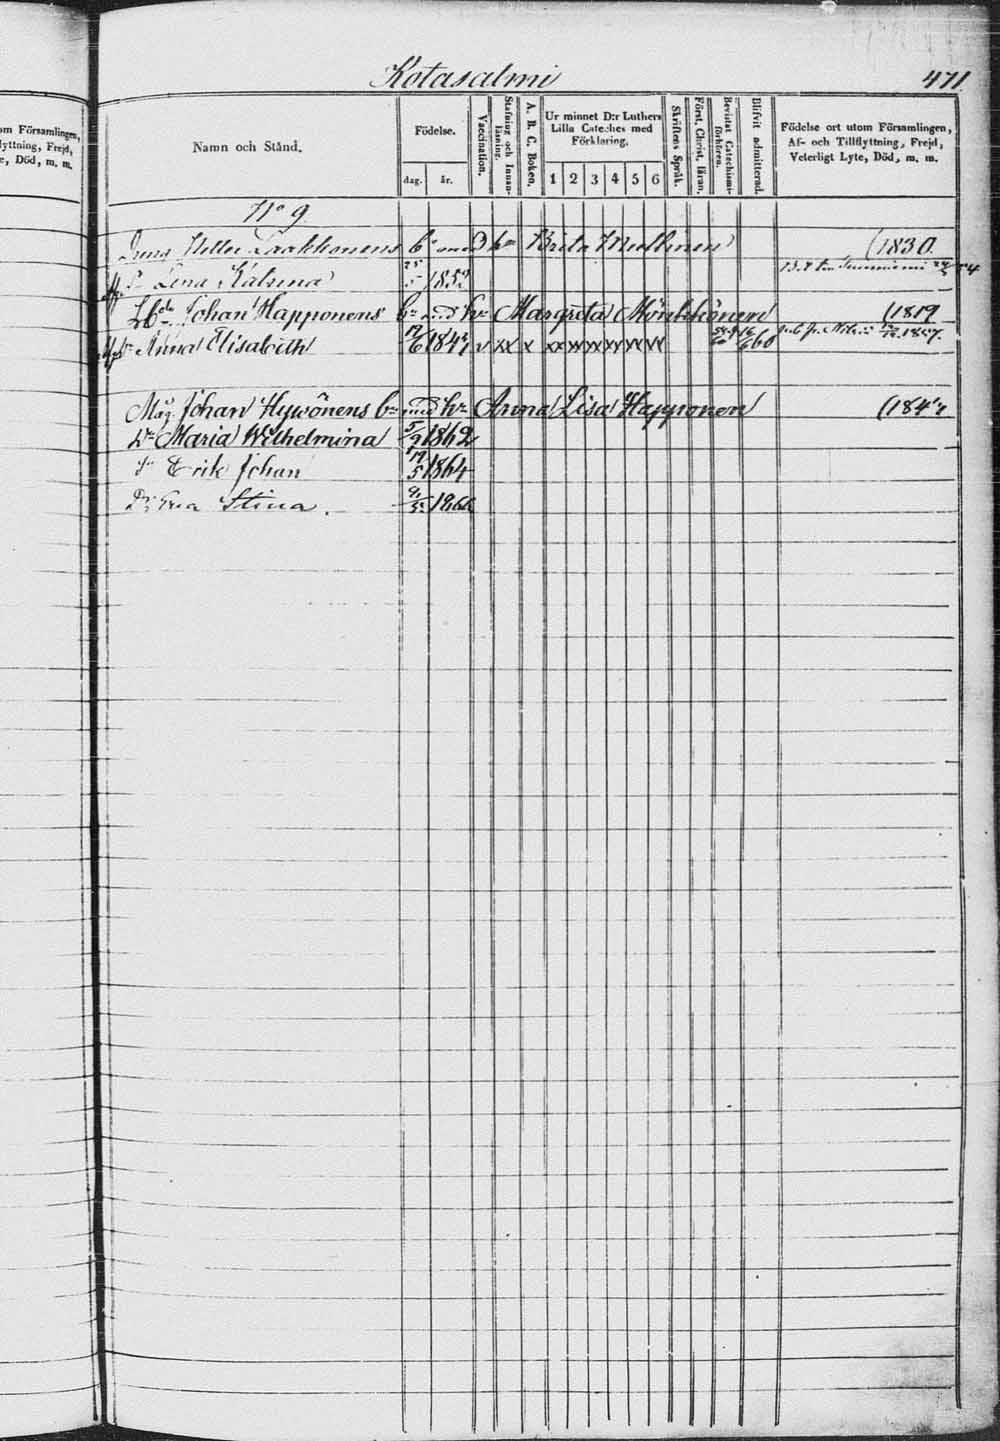 Kotasalmi 471
om Församlingen,
lyttning, Frejd,
e, Död, m. m.
Namn och Stånd.
Födelse.
dag. år.
Vaccination.
Stafning och Innanläsning.
A. B. C. Boken.
Ur minnet D:r Luthers
Lilla Cateches med
Förklaring.
1 2 3 4 5 6
Skriftens Språk.
Först. Christ. läran.
Bevistat Catechismiförhören.
Blifvit admitterad.
Födelse ort utom Församlingen,
Af- och Tillflyttning, Frejd,
Veterligt Lyte, Död, m. m.
No 9
Laakkonens med hu Brita (1830
Lena Katrina 1852
Johan Happonens med hu Margreta Mönkkönen (1819
Anna Elisabeth 1847 v xx x xx xx xx xx xx xx 1857.
Måg. Johan Hyvönens med hu Anna Lisa Happonen (1847
Dr Maria Wilhelmina 5/9 1862
Sn Erik Johan 1864
Dr Eva Stina. 1866